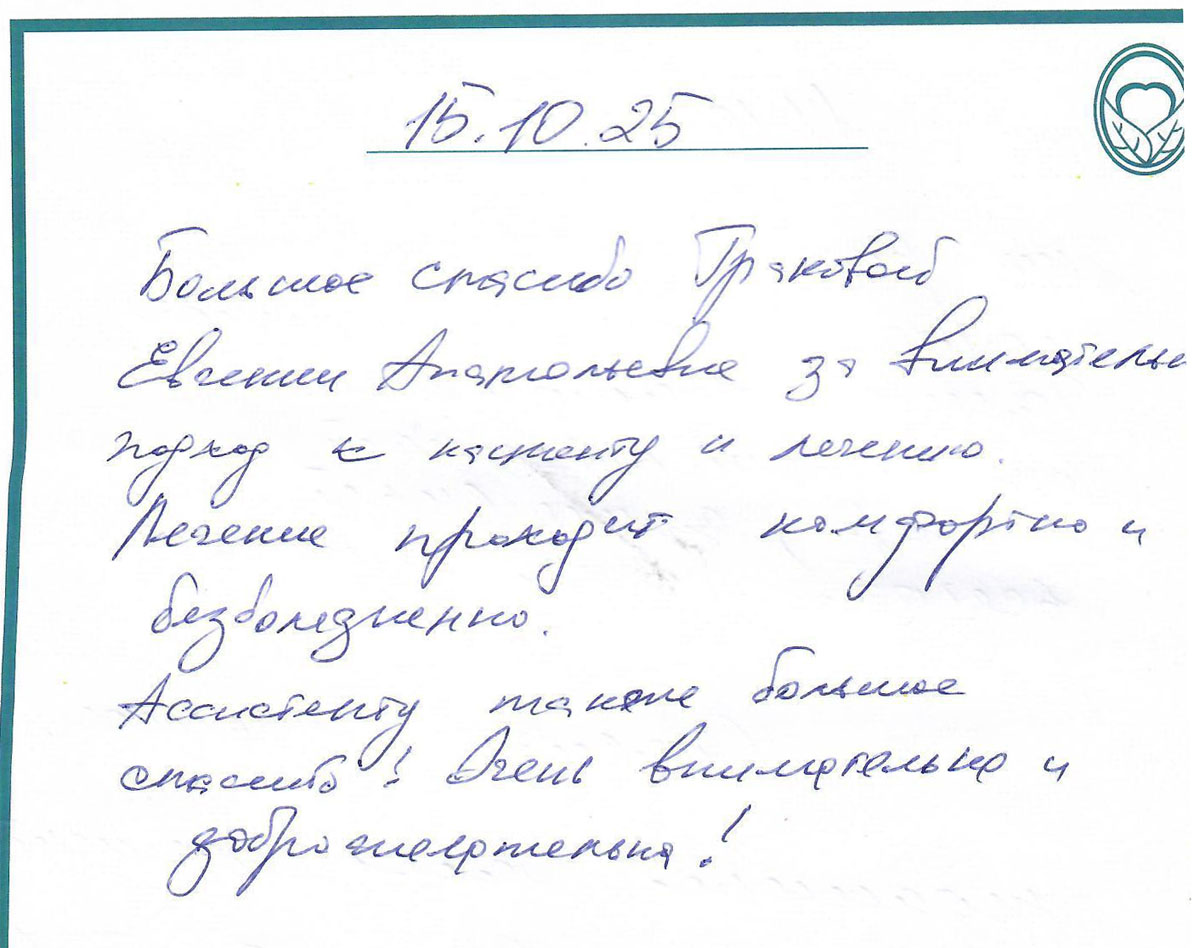 15.10.25
Большое спасибо Траковой
Евгении Анатольевне за внимательн
подход к пациенту и лечению.
Лечение проходит комфортно и
безболезненно.
Ассистенту также большое
спасибо! Очень внимательна и
доброжелательна!